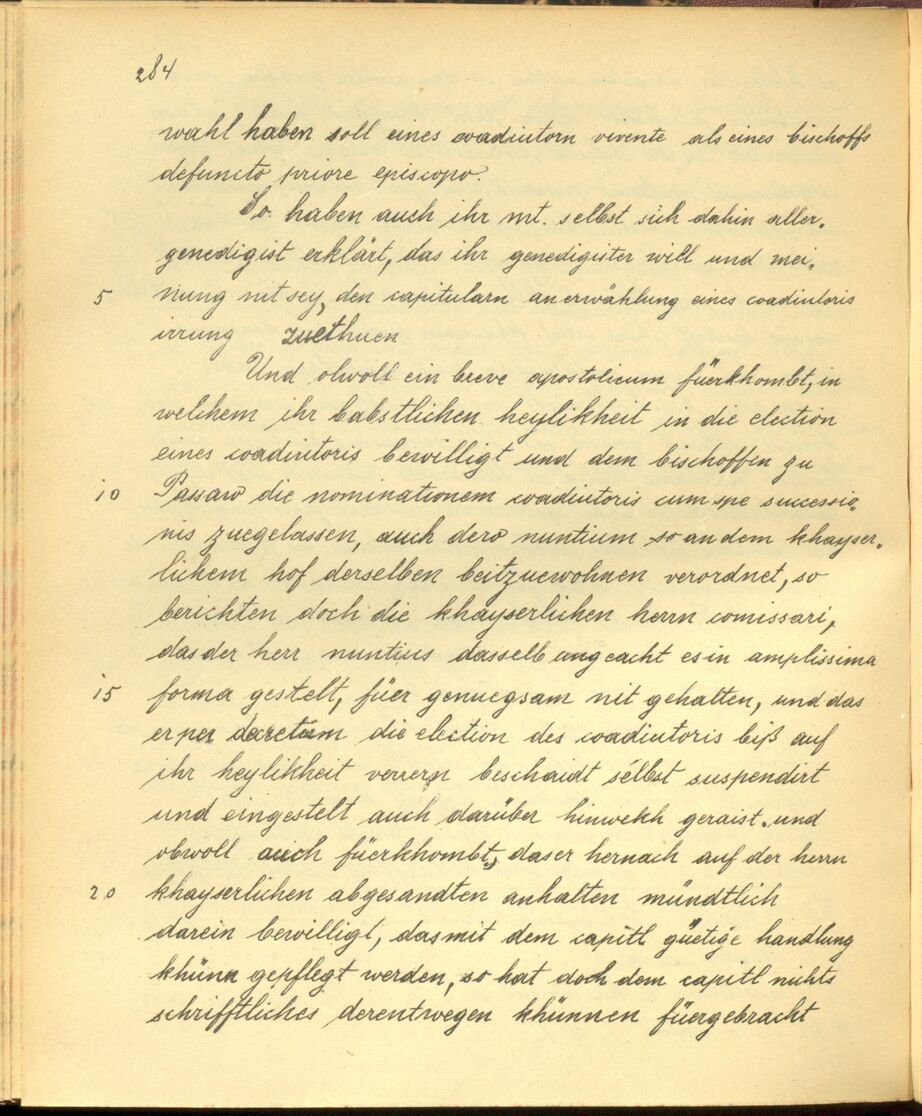 284
wahl haben soll eines coadiutorn vivente als eines bischoffs
defuncto priore episcopo.
So haben auch ihr mt. selbst sich dahin aller„
genedigist erklärt, das ihr genedigister will und mei„
5 nung nit sey, den capitularn an erwählung eines coadiutoris
irrung zuethuen
Und obwoll ein breve apostolicum füerkhombt, in
welchem ihr babstlichen heylikheit in die election
eines coadiutoris bewilligt und dem bischoffen zu
10 Passaw die nominationem coadiutoris cum spe successio„
nis zuegelassen, auch dero nuntium so an dem khayser„
lichem hof derselben beitzuewohnen verordnet, so
berichten doch die khayserlichen herrn comissari,
das der herr nuntius dasselb ungeacht es in amplissima
15 forma gestelt, füer genuegsam nit gehalten, und das
er per decretum die election des coadiutoris biß auf
ihr heylikheit verrern beschaidt selbst suspendirt
und eingestelt auch darüber hinwekh geraist. und
obwoll auch füerkhombt, das er hernach auf der herrn
20 khayserlichen abgesandten anhalten mündtlich
darein bewilligt, das mit dem capitl güetige handlung
khünn gepflegt werden, so hat doch dem capitl nichts
schrifftliches derentwegen khünnen füergebracht